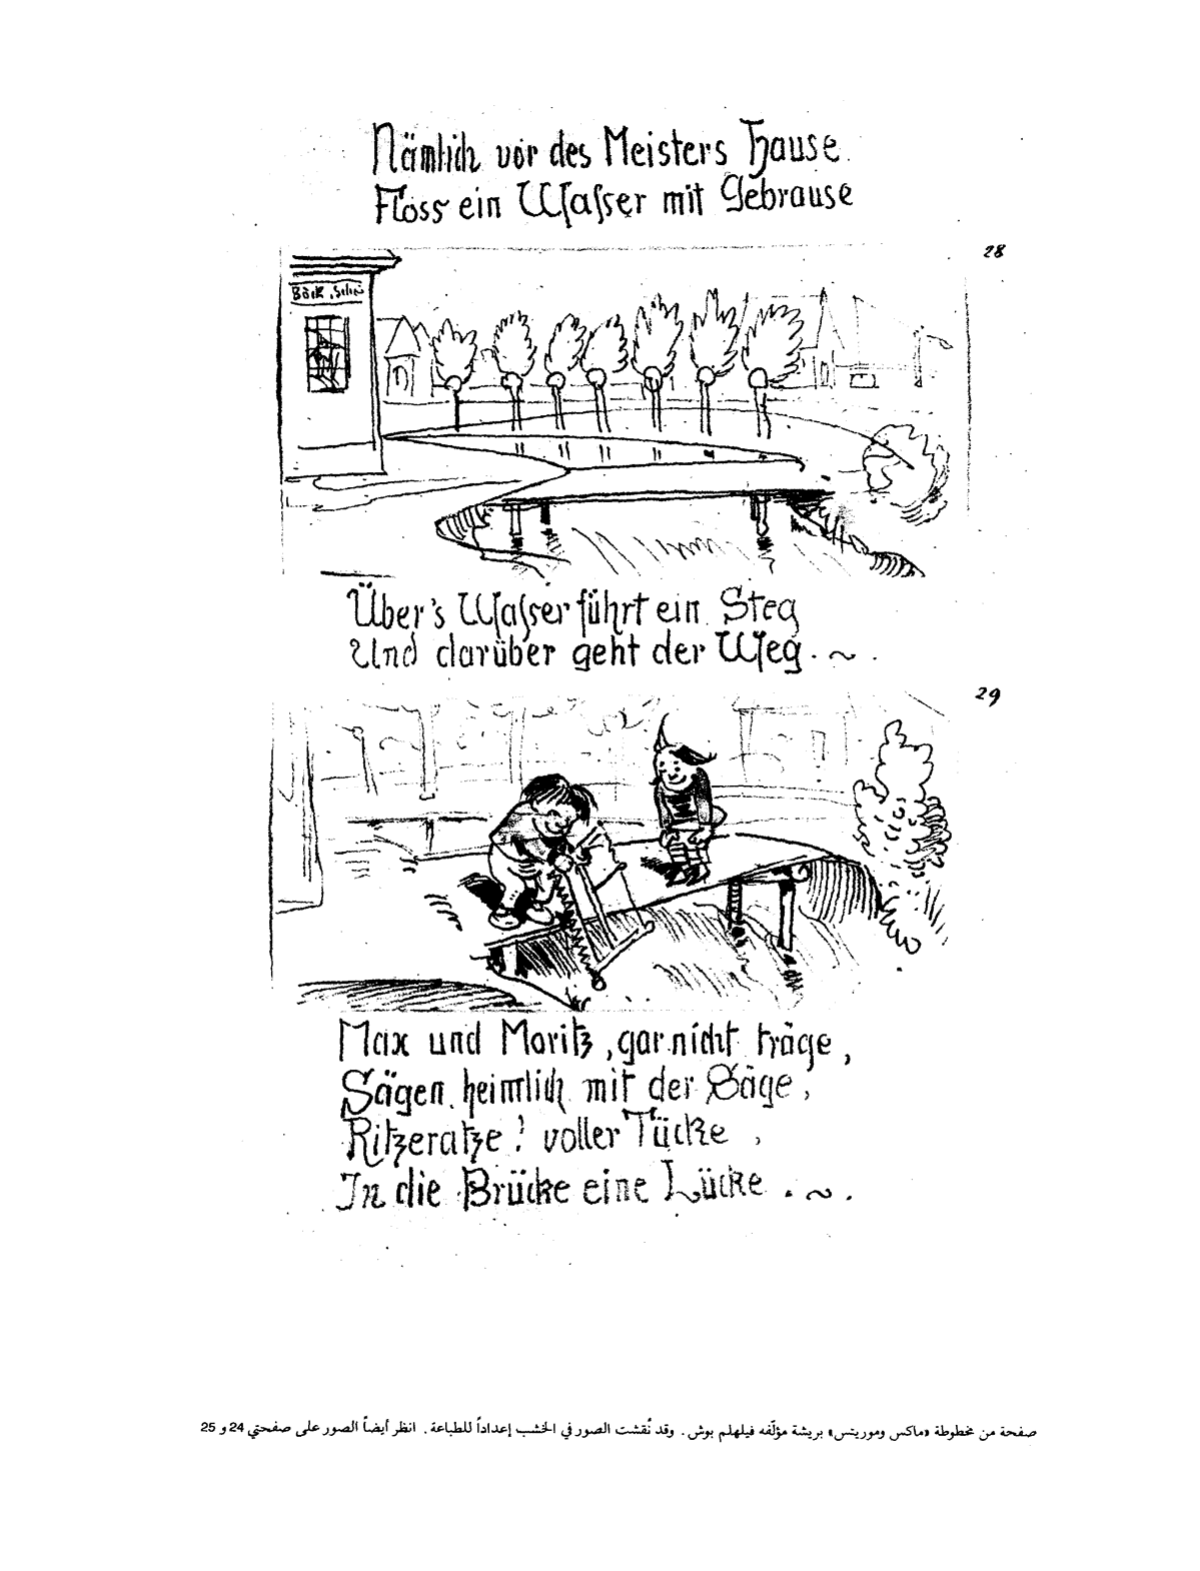 Nämlich vor des Meisters Hause
Floss ein Wasser mit Gebrause
28
Böck
Über's Wasser führt ein Steg
Und darüber geht der Weg. ~ .
29
Max und Moritz, gar nicht träge,
Sägen heimlich mit der Säge,
Ritzeratze! voller Tücke,
In die Brücke eine Lücke. ~ .
صفحة من مخطوطة «ماكس وموريتس» بريشة مؤلّفه فيلهلم بوش. وقد نُقشت الصور في الخشب إعداداً للطباعة. انظر أيضاً الصور على صفحتي 24 و 25